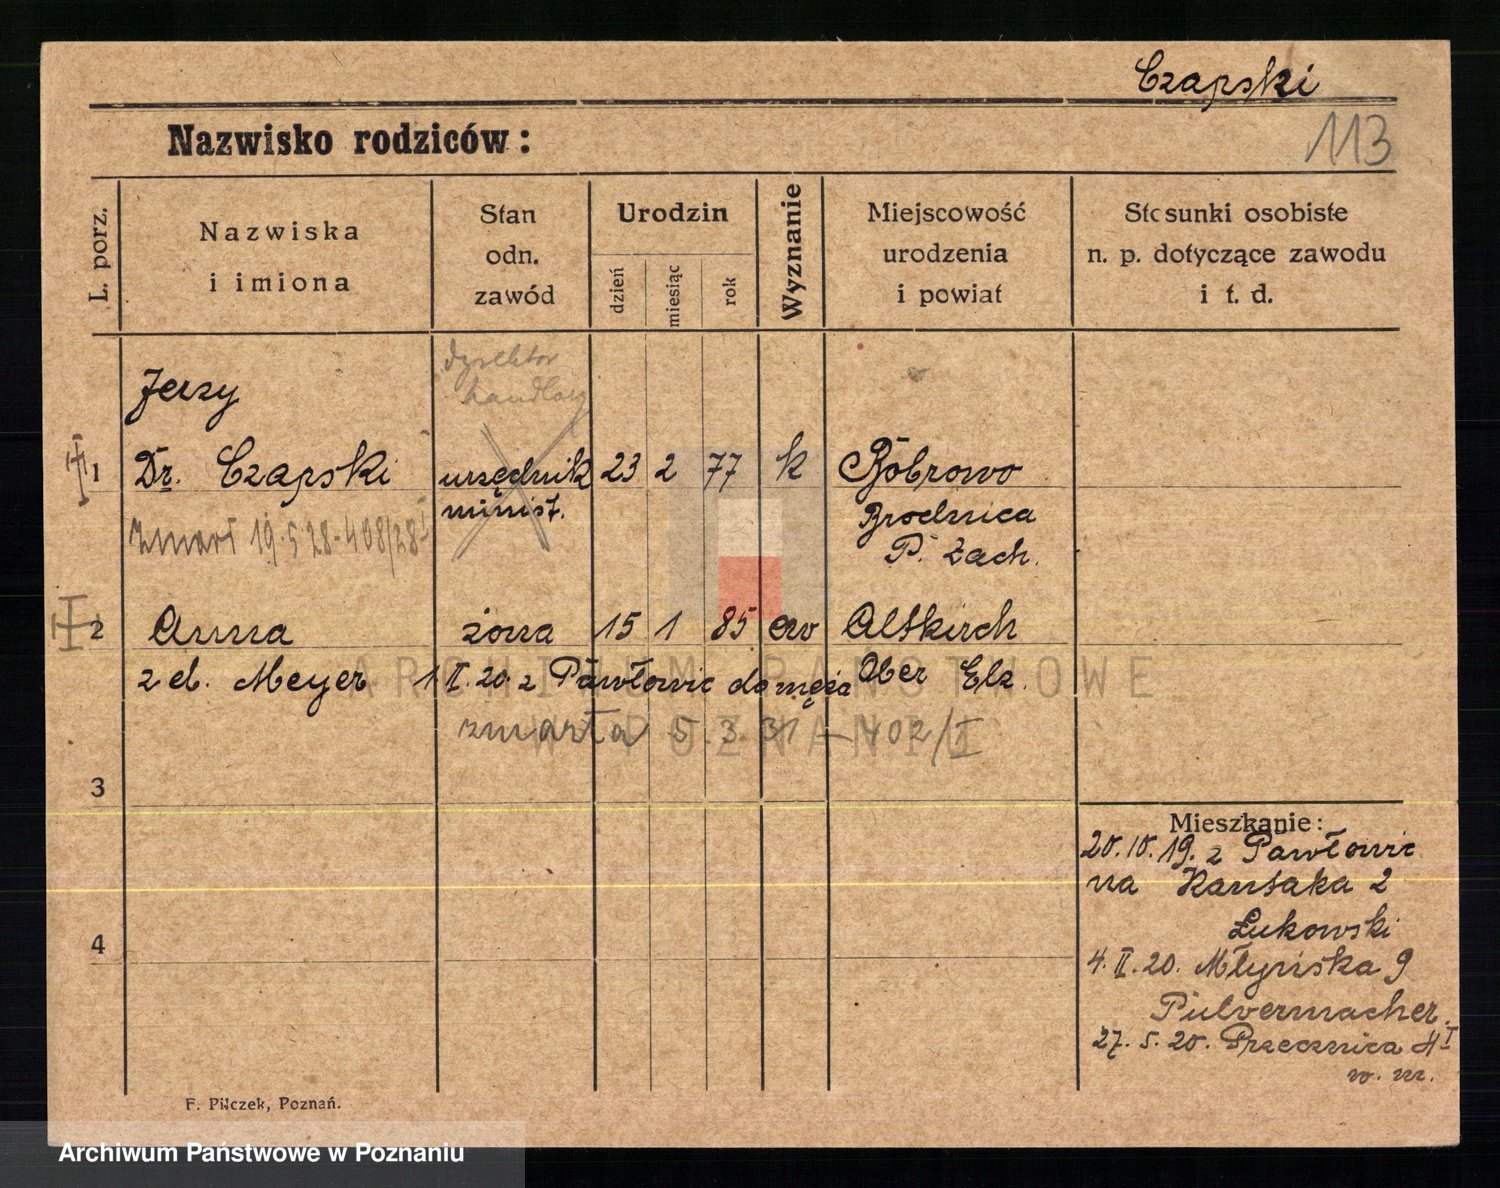 Czapski
Nazwisko rodziców:
113
L. porz.
Nazwiska
i imiona
Stan
odn.
zawód
Urodzin
dzień
miesiąc
rok
Wyznanie
Miejscowość
urodzenia
i powiat
Stosunki osobiste
n. p. dotyczące zawodu
i t. d.
dyrektor
handlowy
Jerzy
1 Dr. Czapski urzędnik 23 2 77 k Bobrowo
minist. Brodnica
zmarł 19.5.28-408/28 I
P. Zach.
2 Anna żona 15 1 85 ew Altkirch
z d. Meyer 1 II. 20. z Pawłowic do męża Ober Elz.
zmarła 5.3.31 - 402/I
3
Mieszkanie:
20.10.19. z Pawłowic
na Kantaka 2
Łukowski
4
4. II. 20. Młyńska 9
Pulvermacher.
27. 5. 20. Przecznica 4 I
w. m.
F. Pilczek, Poznań.
ARCHIWUM PAŃSTWOWE
W POZNANIU
Archiwum Państwowe w Poznaniu